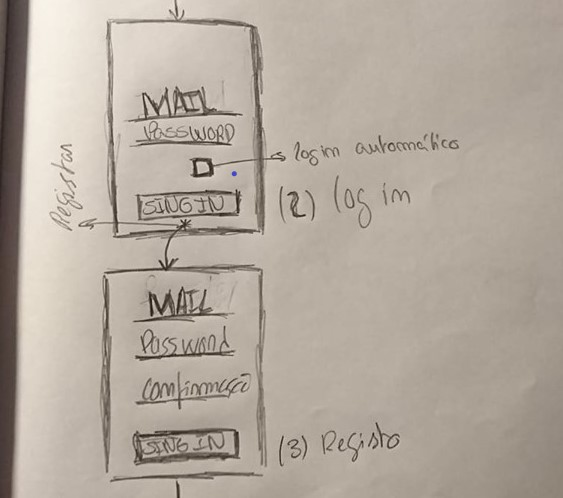 MAIL
PASSWORD
login automático
Registar
SING IN
(2) log in
MAIL
Password
Confirmação
SING IN
(3) Registo